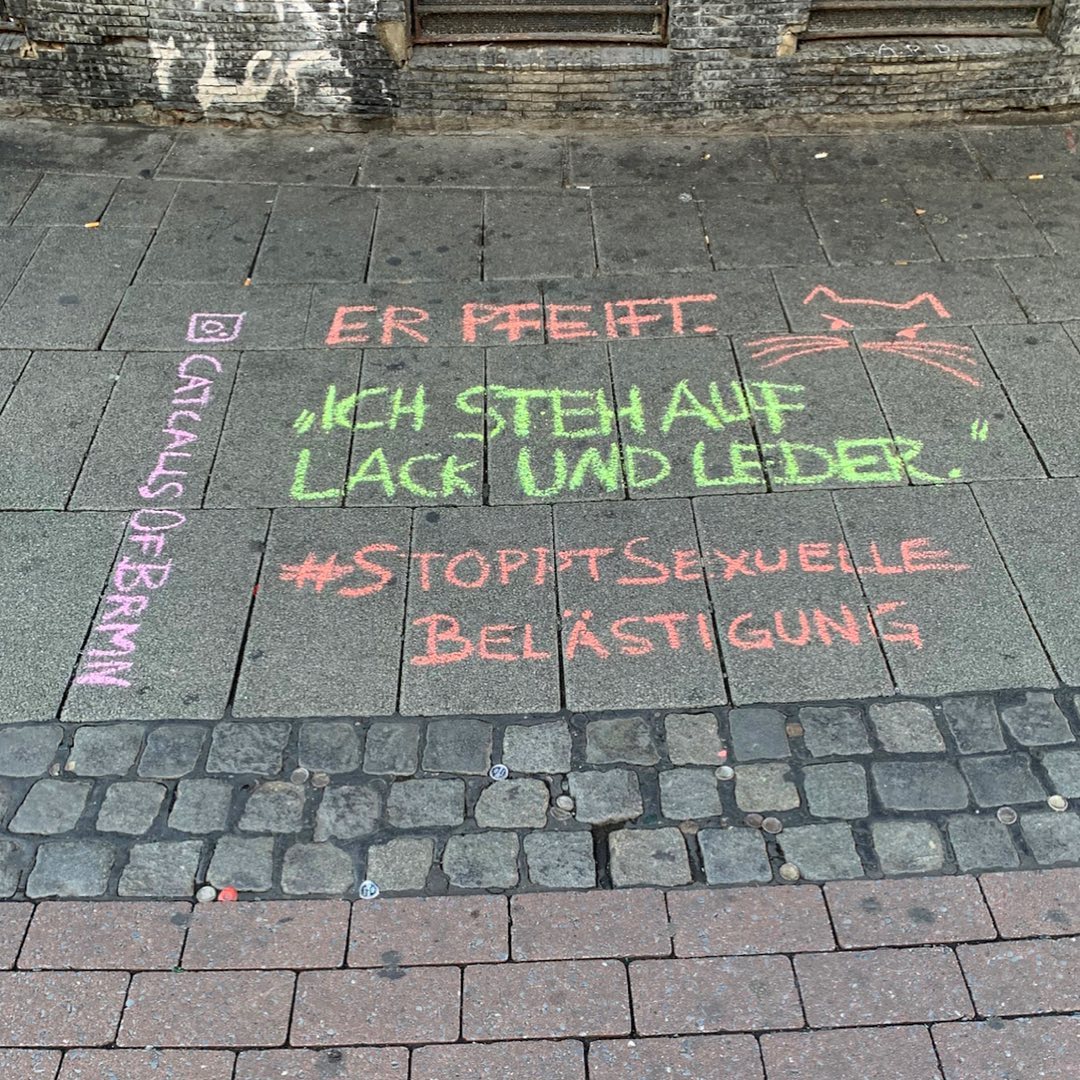 ER PFEIFT.
„ICH STEH AUF
LACK UND LEDER."
#STOPPT SEXUELLE
BELÄSTIGUNG
CATCALLSOFBRMN